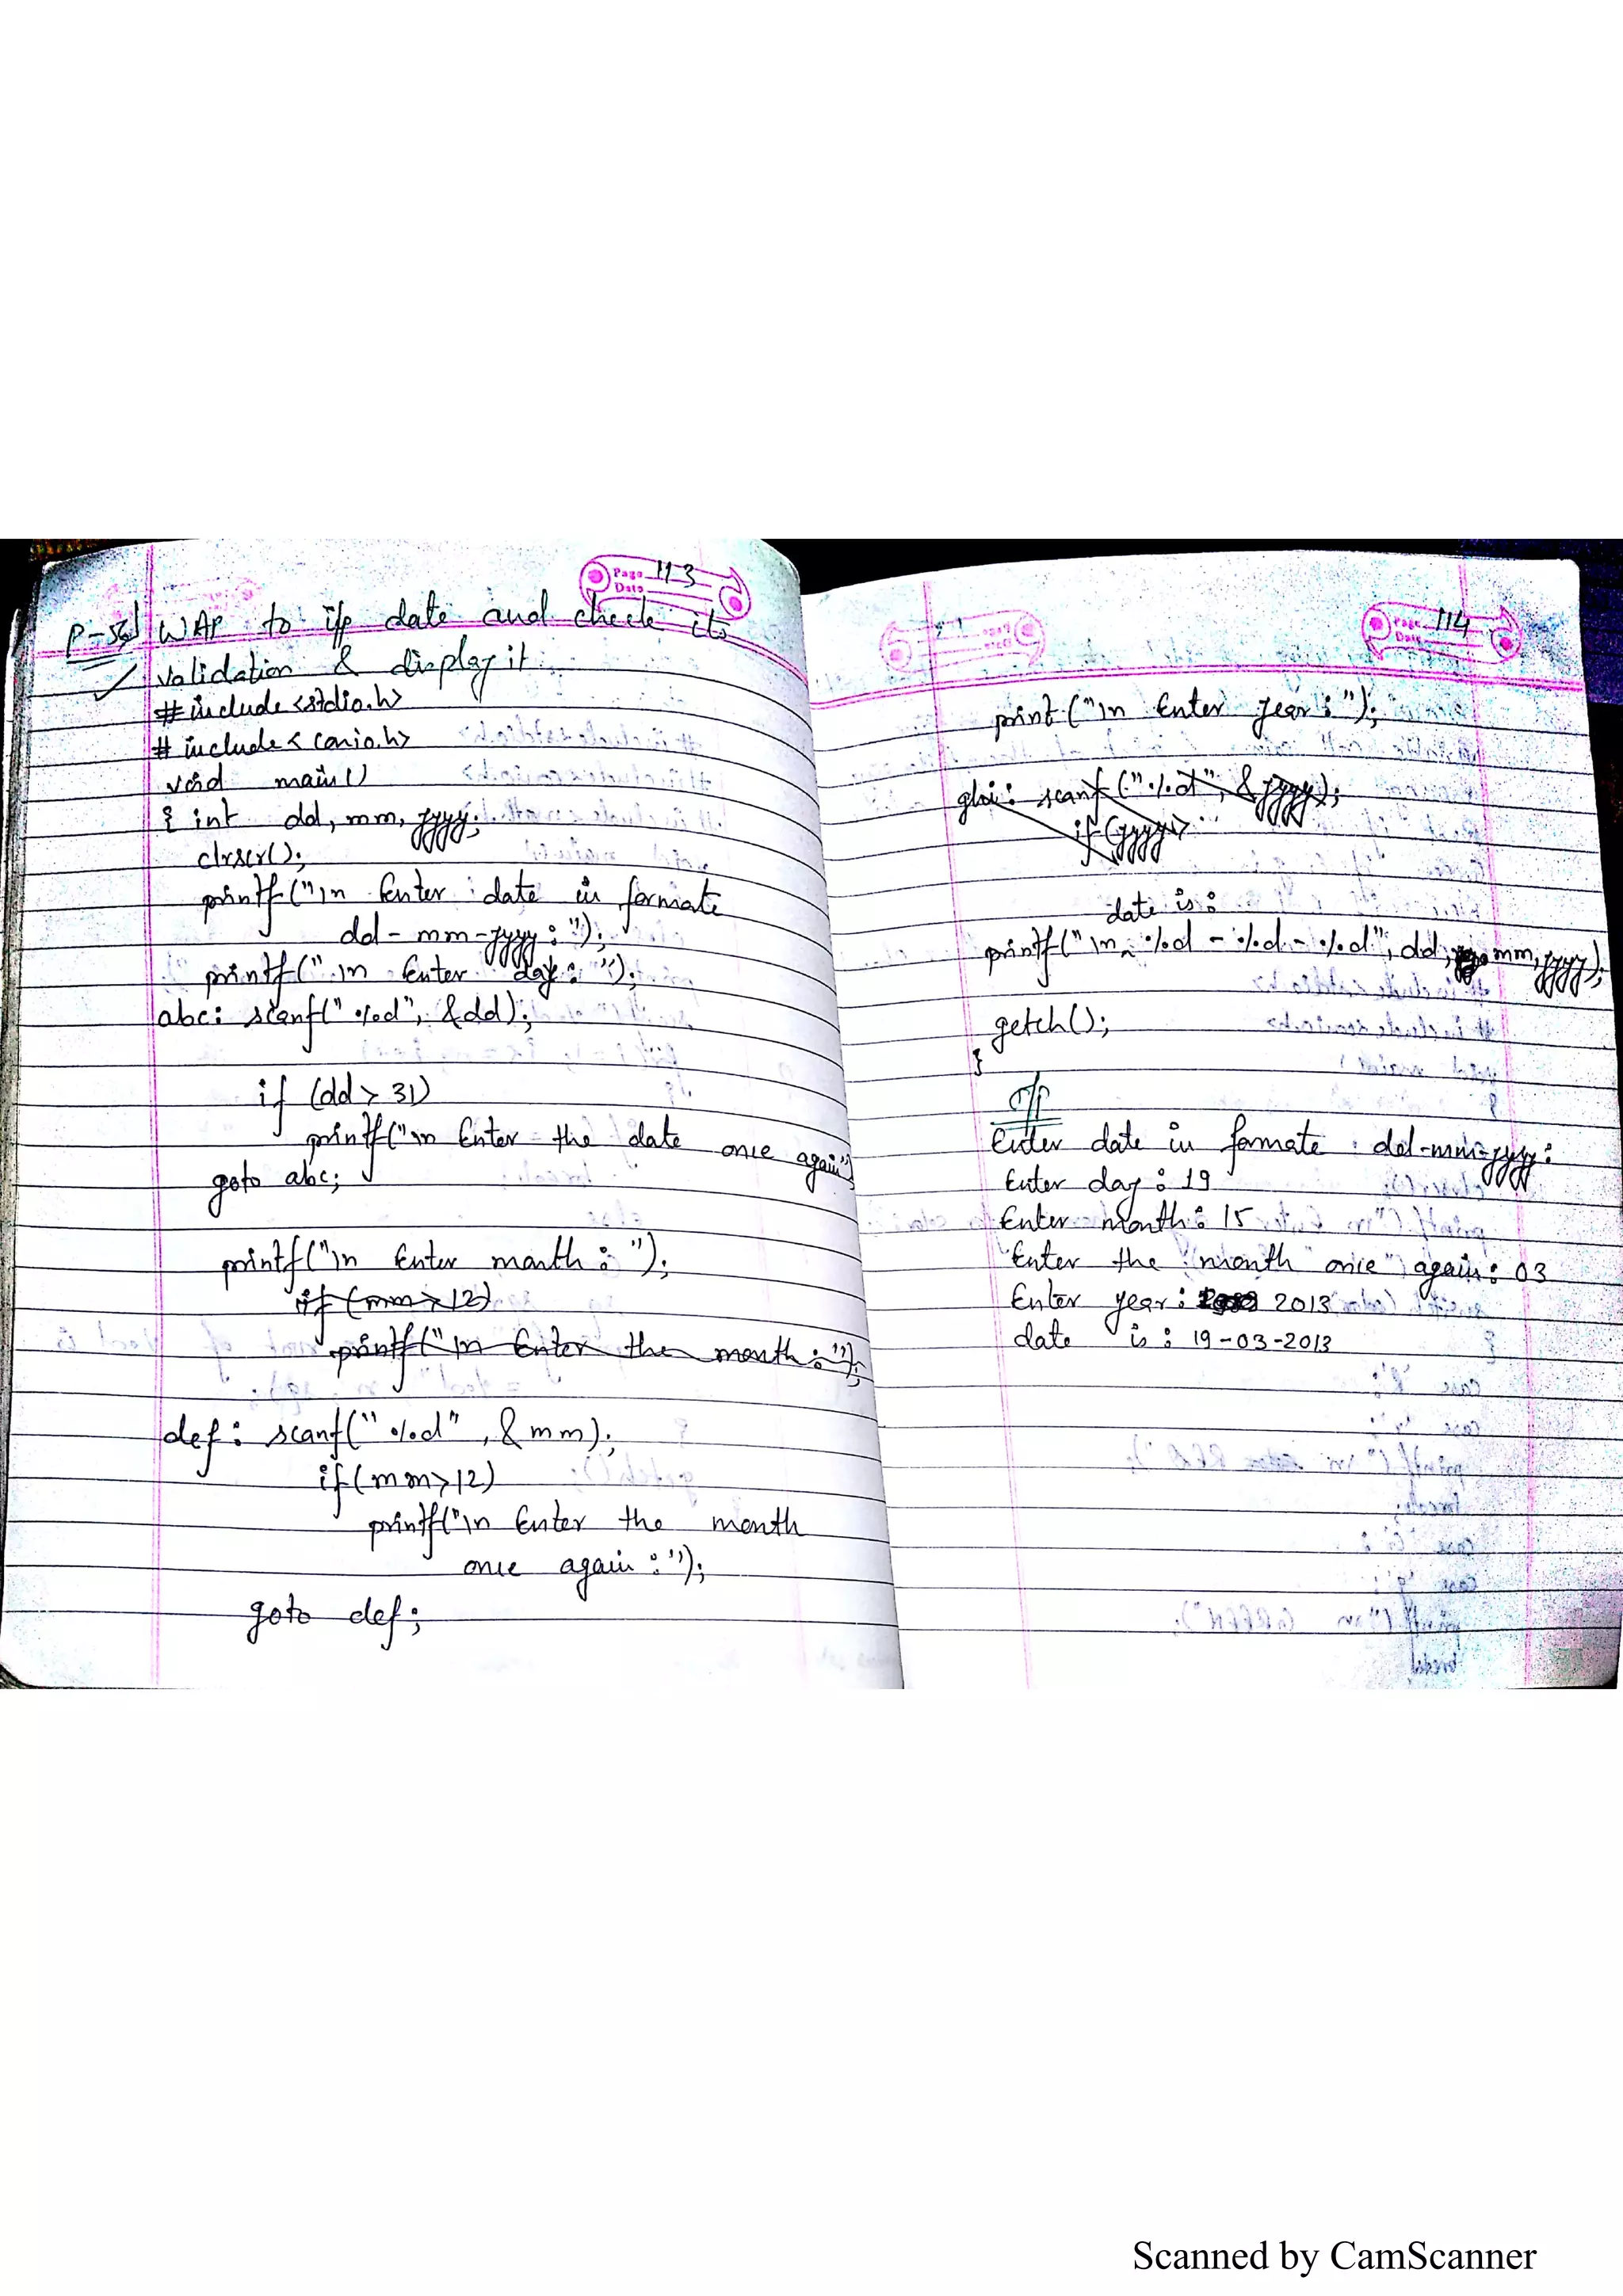 Page 113
Date
P-56) WAP to i/p date and check its
validation & display it
#include <stdio.h>
#include < conio.h>
void main()
{ int dd, mm, yyyy;
clrscr();
printf("\n Enter date in formate
dd - mm - yyyy : ");
printf(" \n Enter day: ");
abc: scanf(" %d", &dd);
if (dd > 31)
printf("\n Enter the date once again")
goto abc;
printf("\n Enter month : ");
if (mm > 12)
printf("\n Enter the month : ");
def: scanf(" %d" , & mm);
if(mm>12)
printf("\n Enter the month
once again : ");
goto def;
Page 114
Date
print ("\n Enter year : ");
ghi: scanf ("%d", & yyyy);
if (yyyy>
date is:
printf("\n %d - %d - %d", dd, mm, yyyy);
getch();
}
O/P
Enter date in formate dd-mm-yyyy:
Enter day : 19
Enter month : 15
Enter the month once again : 03
Enter year : 2013
date is : 19-03-2013
Scanned by CamScanner